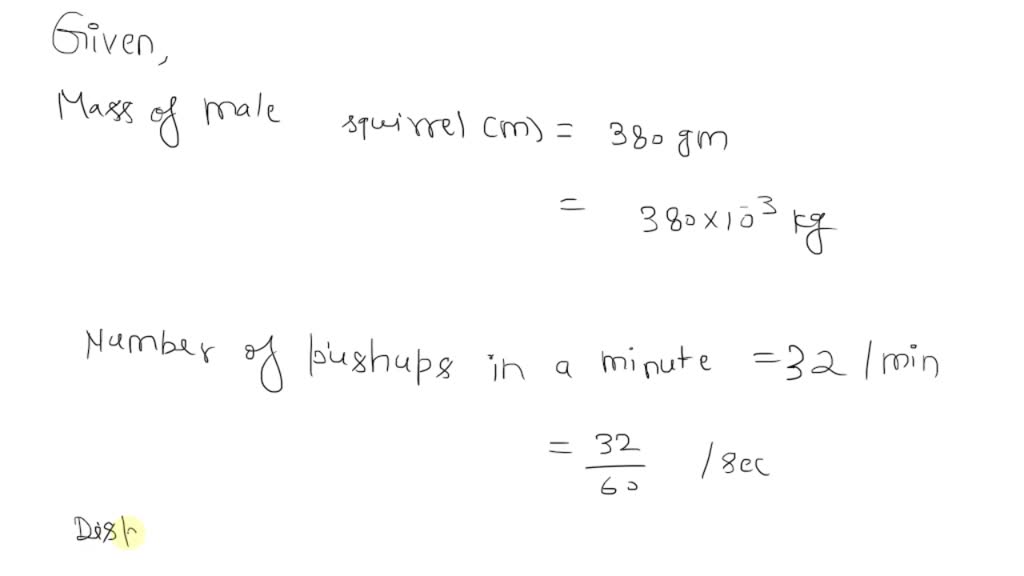 Given,
Mass of male squirrel (m) = 380 gm
= 380×10⁻³ kg
Number of pushups in a minute = 32 /min
= 32/60 /sec
Disp